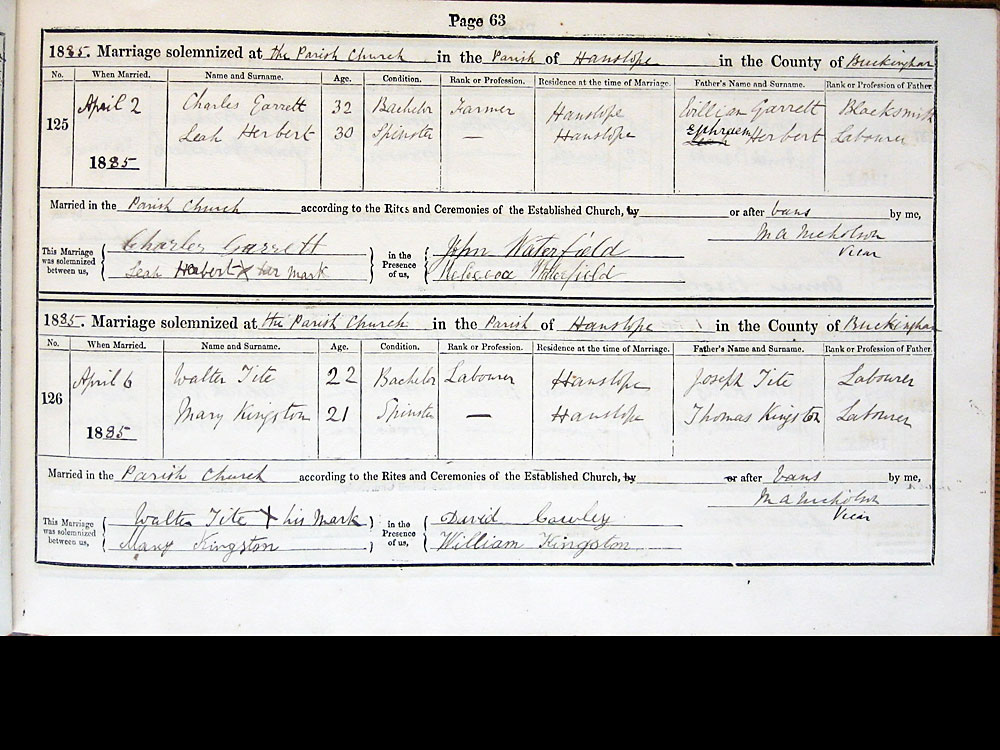 Page 63
1885. Marriage solemnized at the Parish Church in the Parish of Hanslope in the County of Buckingham
No. When Married. Name and Surname. Age. Condition. Rank or Profession. Residence at the time of Marriage. Father's Name and Surname. Rank or Profession of Father.
April 2 Charles Garrett 32 Bachelor Farmer Hanslope William Garrett Blacksmith
125 Leah Herbert 30 Spinster — Hanslope Ephraem Herbert Labourer
1885
Married in the Parish Church according to the Rites and Ceremonies of the Established Church, by or after bans by me,
M A Nicholson
Vicar
This Marriage was solemnized between us, Charles Garrett in the Presence of us, John Waterfield
Leah Herbert X her mark Rebecca Waterfield
1885. Marriage solemnized at the Parish Church in the Parish of Hanslope in the County of Buckingham
No. When Married. Name and Surname. Age. Condition. Rank or Profession. Residence at the time of Marriage. Father's Name and Surname. Rank or Profession of Father.
April 6 Walter Tite 22 Bachelor Labourer Hanslope Joseph Tite Labourer
126 Mary Kingston 21 Spinster — Hanslope Thomas Kingston Labourer
1885
Married in the Parish Church according to the Rites and Ceremonies of the Established Church, by or after bans by me,
M A Nicholson
Vicar
This Marriage was solemnized between us, Walter Tite X his mark in the Presence of us, David Cowley
Mary Kingston William Kingston